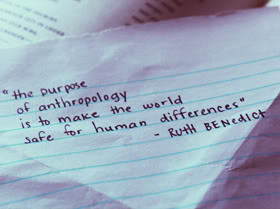 "the purpose
of anthropology
is to make the world
safe for human differences"
- RUTH BENedict